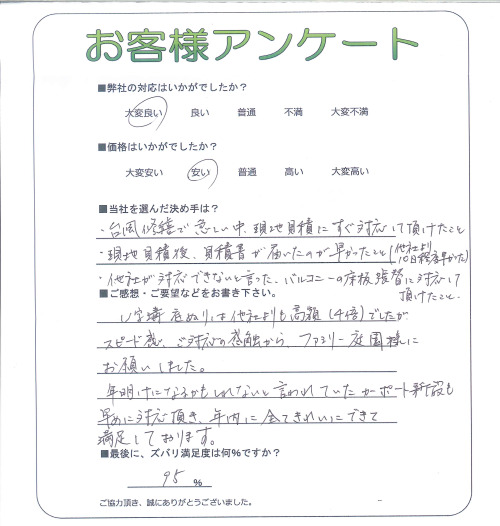 お客様アンケート
■弊社の対応はいかがでしたか？
大変良い 良い 普通 不満 大変不満
■価格はいかがでしたか？
大変安い 安い 普通 高い 大変高い
■当社を選んだ決め手は？
・台風修繕で忙しい中、現地見積にすぐ対応して頂けたこと
・現地見積後、見積書が届いたのが早かったこと(他社より
10日程早かった)
・他社が対応できないと言った、バルコニーの床板張替に対応して
頂けたこと。
■ご感想・ご要望などをお書き下さい。
U字溝 底ぬりは他社よりも高額(4倍)でしたが
スピード感、ご対応の感触から、ファミリー庭園様に
お願いしました。
年明けになるかもしれないと言われていたカーポート新設も
早めに対応頂き、年内に全てきれいにできて
満足しております。
■最後に、ズバリ満足度は何%ですか？
95 %
ご協力頂き、誠にありがとうございました。